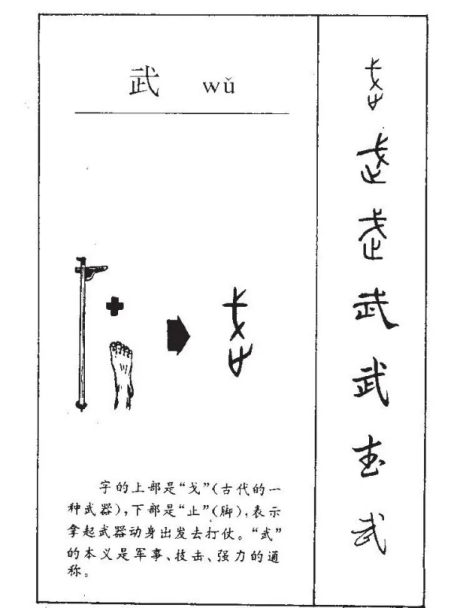 武 wǔ
字的上部是“戈”(古代的一
种武器),下部是“止”(脚),表示
拿起武器动身出发去打仗。“武”
的本义是军事、技击、强力的通
称。
武
武
武
武
武
武
武